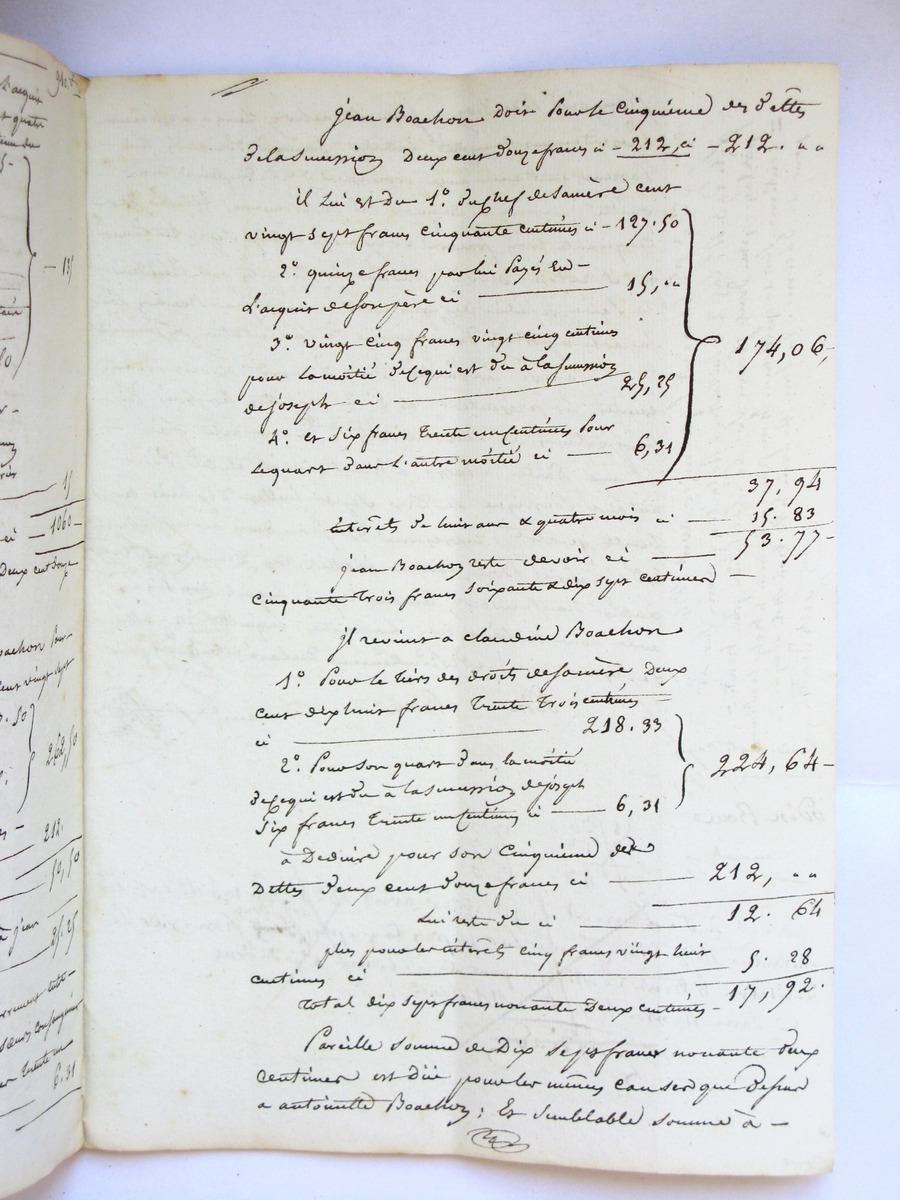 Jean Boachon Doit Pour le Cinquieme des Dettes
de la Succession Deux cent Douze francs ci - 212, ci - 212. " "
il Lui est Du 1.º du Chef de sa mère cent
vingt sept francs Cinquante Centimes ci - 127.50
2.º quinze francs par lui Payés En
L'acquit de son père ci 15, " "
3.º vingt Cinq francs vingt Cinq centimes
pour La moitié de ce qui est Du à la Succession
de joseph ci 25,25
4.º et Six francs Trente un Centimes Pour
Le quart dans L'autre moitié ci 6,31
174,06
37, 94
interêts de huit ans & quatre mois ci 15. 83
53. 77
jean Boachon reste devoir ci
Cinquante Trois francs Soixante & dix sept centimes
jl revient a claudine Boachon
1.º Pour le tiers des droits de sa mère Deux
Cent dix huit francs Trente Trois centimes
ci 218.33
2.º Pour son quart dans la moitié
de ce qui est du à la Succession de joseph
Six francs Trente un Centimes ci 6,31
224, 64
à Deduire pour son Cinquieme des
Dettes Deux cent Douze francs ci 212, " "
Lui reste du ci 12. 64
plus pour les interêts cinq francs vingt huit
centimes ci 5. 28
Total dix sept francs nonante Deux centimes 17, 92.
Pareille somme de Dix sept francs nonante deux
centimes est Düe pour les mêmes causes que Dessus
a antoinette Boachon ; Et semblable somme à
135
15
1060
Deux cent Douze
Boachon Pour
Cent vingt sept
262,50
212.
50,50
à jean 25.25
Trente un
6.31